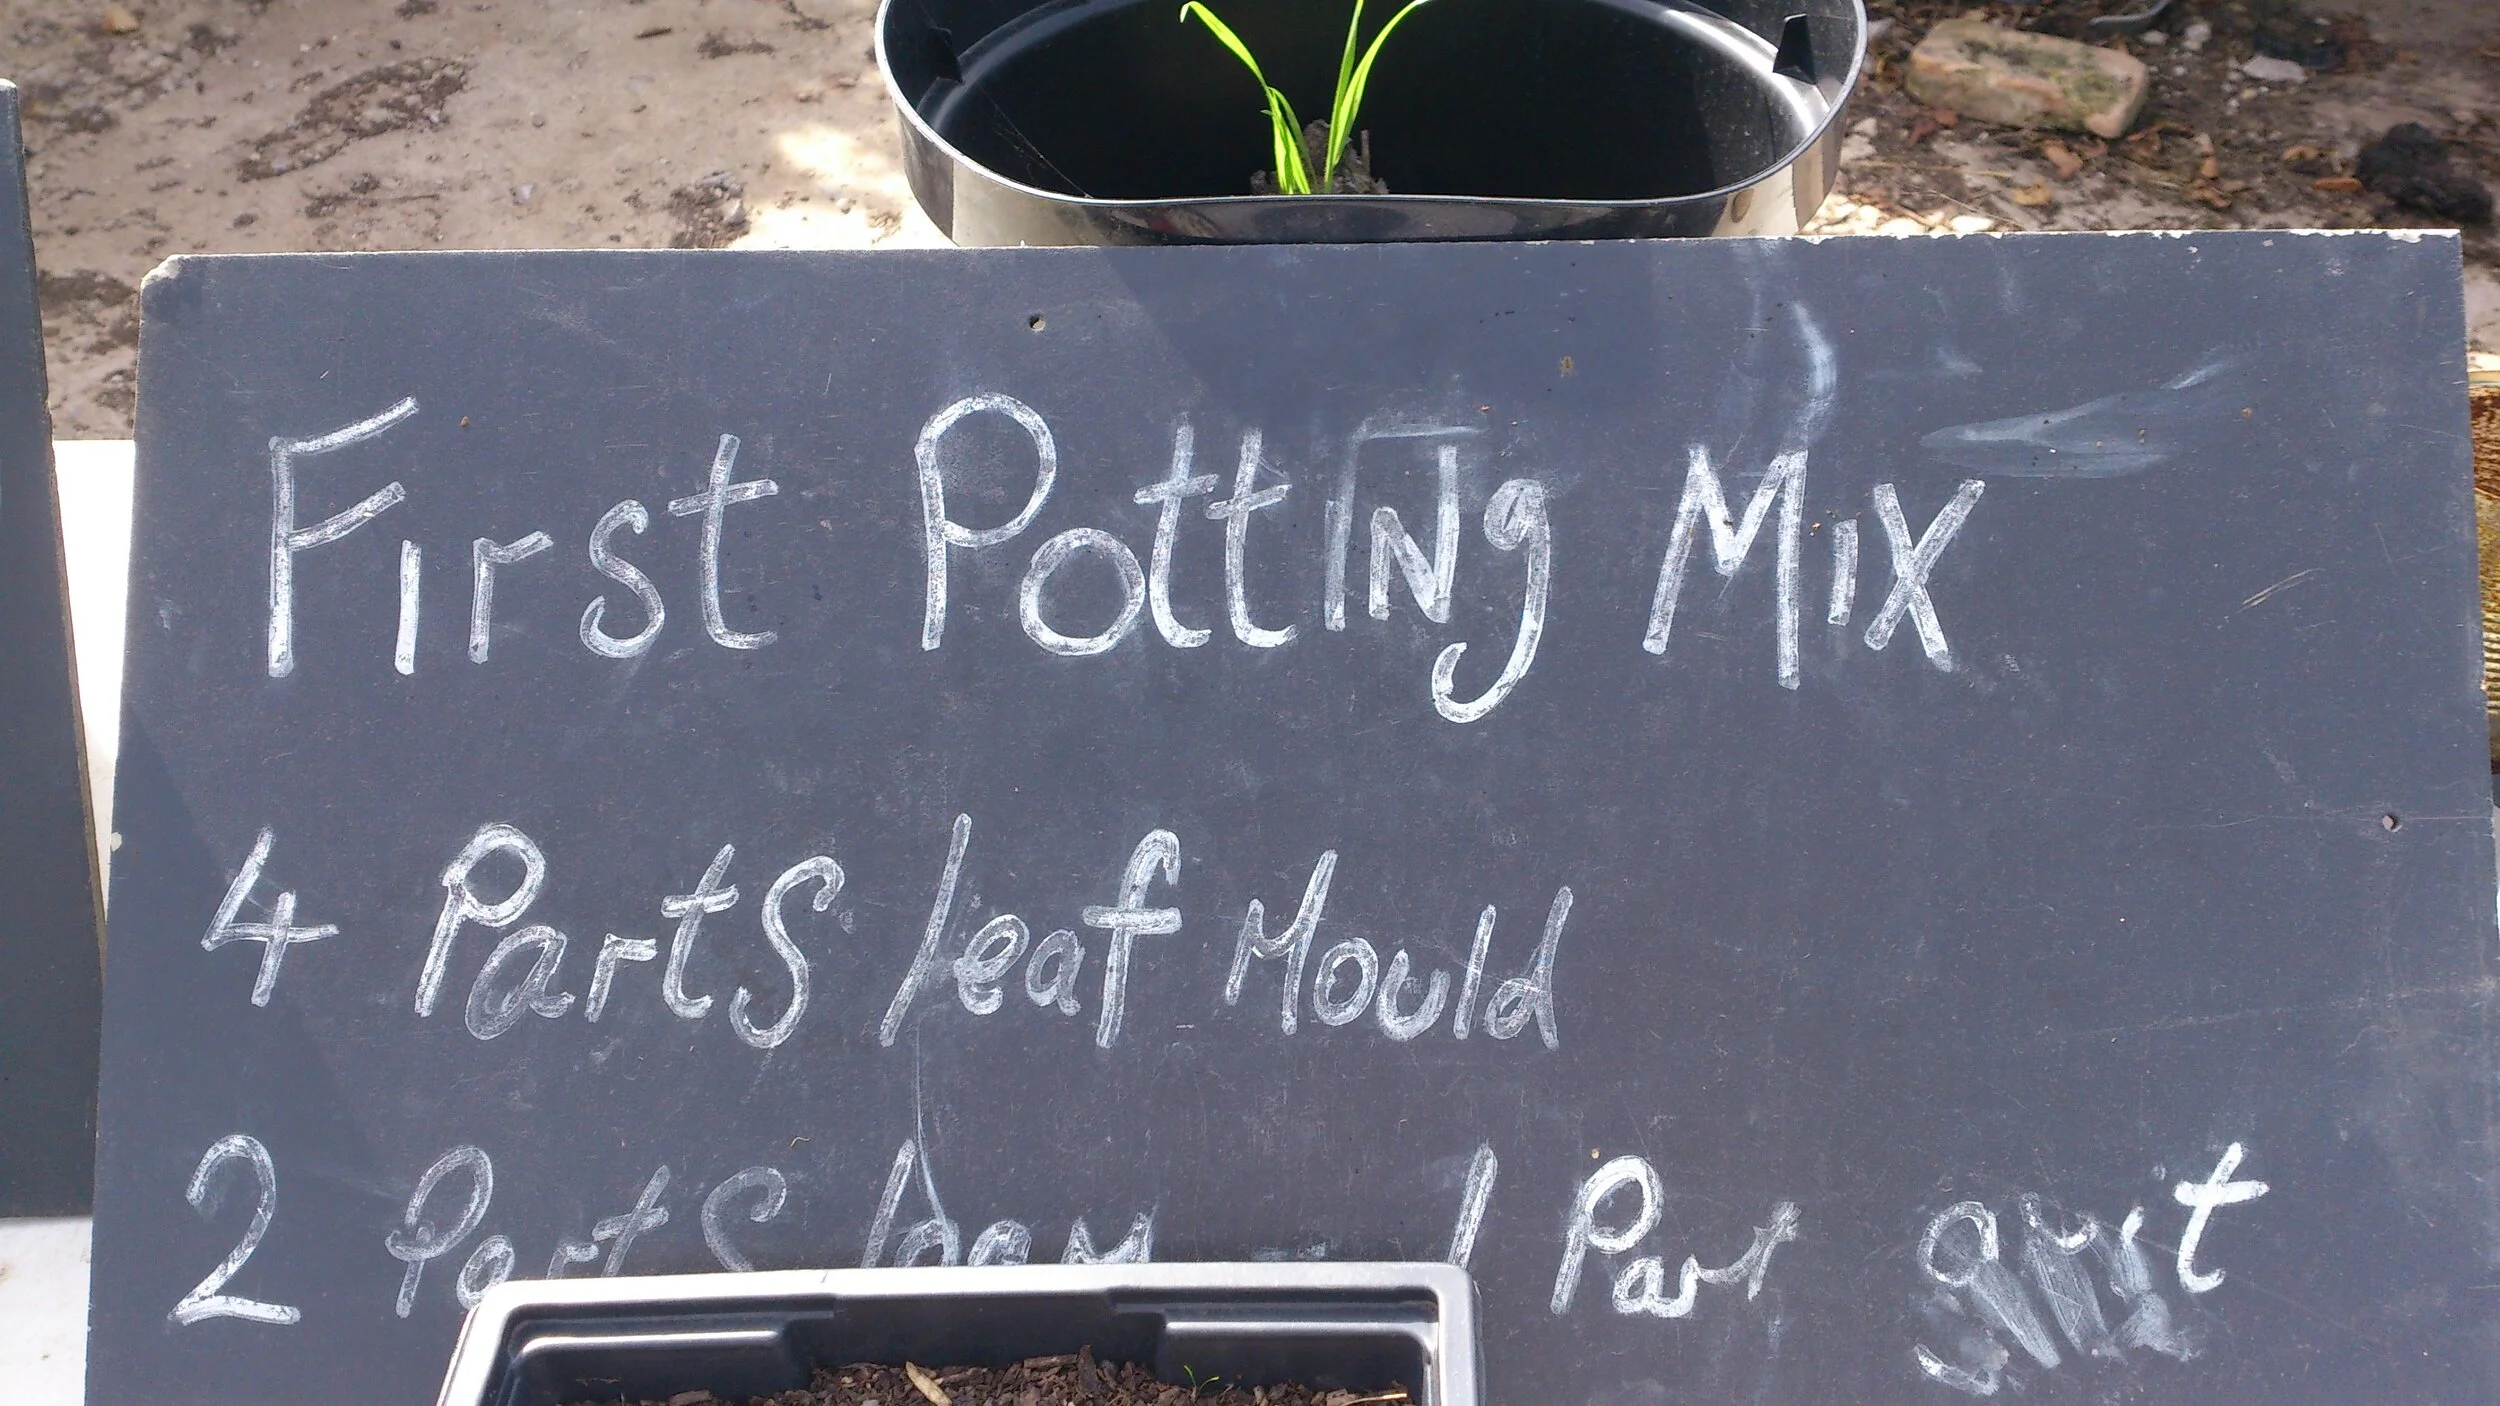 First Potting Mix
4 Parts leaf Mould
2 Parts loam 1 Part grit